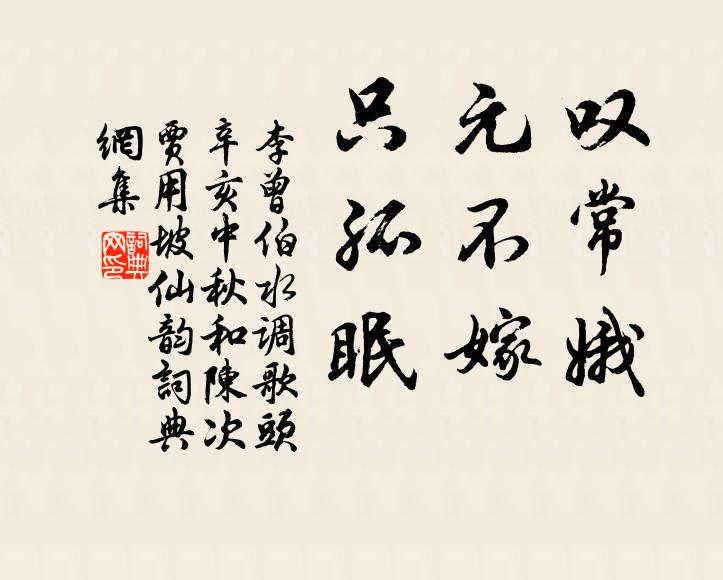 叹常娥
元不嫁
只孤眠
李曾伯水调歌头
辛亥中秋和陳次
賈用坡仙韵詞典
網集
詞典
网印